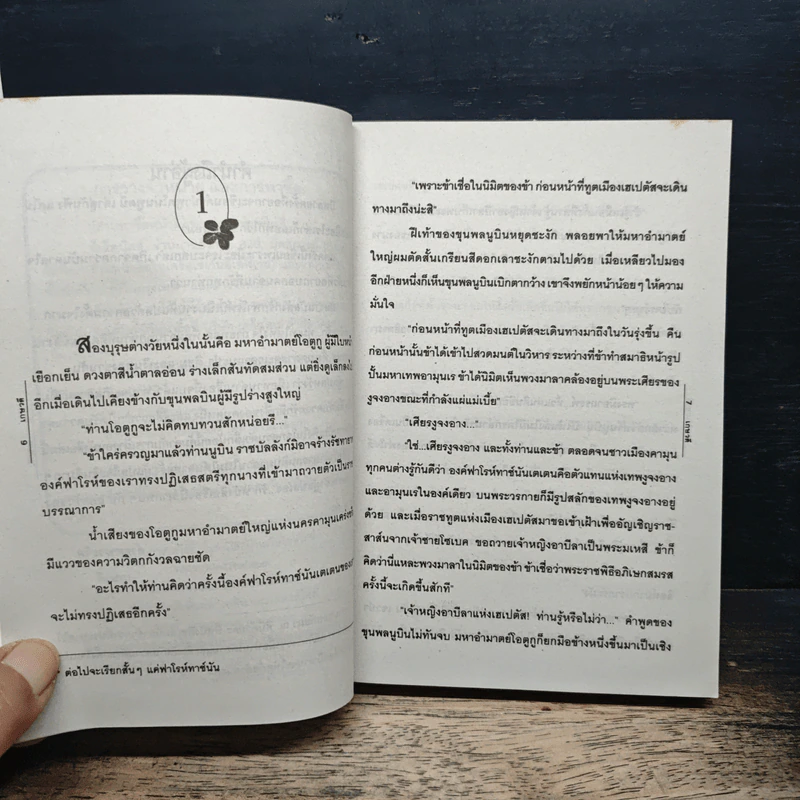 1
สองบุรุษต่างวัยหนึ่งในนั้นคือ มหาอำมาตย์โอตูกู ผู้มีใบหน้า
เยือกเย็น ดวงตาสีน้ำตาลอ่อน ร่างเล็กสันทัดสมส่วน แต่ยิ่งดูเล็กลงไป
อีกเมื่อเดินไปเคียงข้างกับขุนพลบินผู้มีรูปร่างสูงใหญ่
"ท่านโอตูกูจะไม่คิดทบทวนสักหน่อยรึ..."
"ข้าใคร่ครวญมาแล้วท่านนูบิน ราชบัลลังก์มิอาจร้างรัชทายาท
องค์ฟาโรห์ของเราทรงปฏิเสธสตรีทุกนางที่เข้ามาถวายตัวเป็น
บรรณาการ"
น้ำเสียงของโอตูกูมหาอำมาตย์ใหญ่แห่งนครคามุน
มีแววของความวิตกกังวลฉายชัด
"อะไรทำให้ท่านคิดว่าครั้งนี้องค์ฟาโรห์ทาซ์นันเตเตน
จะไม่ทรงปฏิเสธอีกครั้ง"
* ต่อไปจะเรียกสั้นๆ แค่ฟาโรห์ทาซ์นัน
6
เกษวดี
"เพราะข้าเชื่อในนิมิตของข้า ก่อนหน้าที่ทูตเมืองเฮเปตัสจะเดิน
ทางมาถึงน่ะสิ"
ฝีเท้าของขุนพลนูบินหยุดชะงัก พลอยพาให้มหาอำมาตย์
ใหญ่ผมตัดสั้นเกรียนสีดอกเลาชะงักตามไปด้วย เมื่อเหลียวไปมอง
อีกฝ่ายหนึ่งก็เห็นขุนพลนูบินเบิกตากว้าง เขาจึงพยักหน้าน้อยๆ ให้ความ
มั่นใจ
"ก่อนหน้าที่ทูตเมืองเฮเปตัสจะเดินทางมาถึงในวันรุ่งขึ้น คืน
ก่อนหน้านั้นข้าได้เข้าไปสวดมนต์ในวิหาร ระหว่างที่ข้าทำสมาธิหน้ารูป
ปั้นมหาเทพอามุนเร ข้าได้นิมิตเห็นพวงมาลาคล้องอยู่บนพระเศียรของ
งูจงอางขณะที่กำลังแผ่แม่เบี้ย"
"เศียรงูจงอาง..."
"ใช่...เศียรงูจงอาง และทั้งท่านและข้า ตลอดจนชาวเมืองคามุน
ทุกคนต่างรู้กันดีว่า องค์ฟาโรห์ทาซ์นันเตเตนคือตัวแทนแห่งเทพงูจงอาง
และอามุนเรในองค์เดียว บนพระวรกายก็มีรูปสลักของเทพงูจงอางอยู่
ด้วย และเมื่อราชทูตแห่งเมืองเฮเปตัสมาขอเข้าเฝ้าเพื่ออัญเชิญราช-
สาส์นจากเจ้าชายโซเบค ขอถวายเจ้าหญิงอาบีลาเป็นพระมเหสี ข้าก็
คิดว่านี่แหละพวงมาลาในนิมิตของข้า ข้าเชื่อว่าพระราชพิธีอภิเษกสมรส
ครั้งนี้จะเกิดขึ้นสักที"
"เจ้าหญิงอาบีลาแห่งเฮเปตัส! ท่านรู้หรือไม่ว่า..." คำพูดของ
ขุนพลนูบินไม่ทันจบ มหาอำมาตย์โอตูกูก็ยกมือข้างหนึ่งขึ้นมาเป็นเชิง
7
เกษวดี